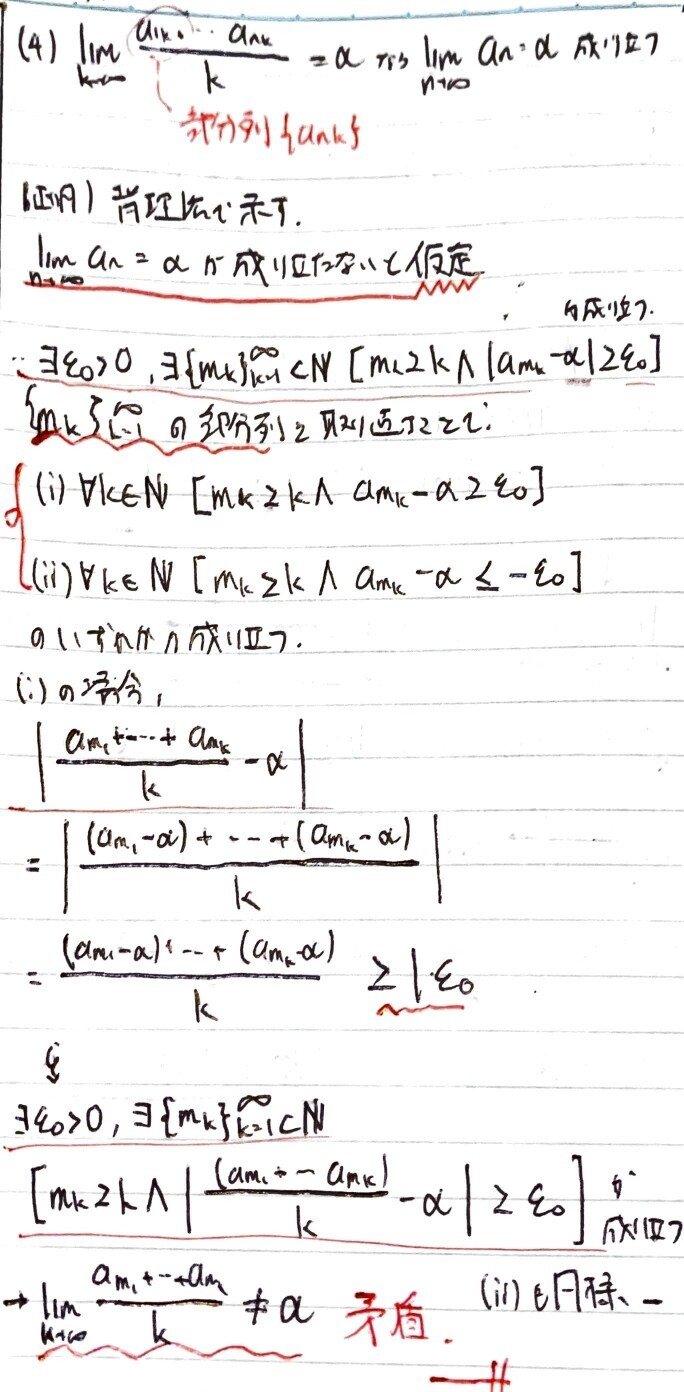 (4) lim_{k→∞} (a_{n1}+…+a_{nk})/k = α ならば lim_{n→∞} a_n = α 成り立つ
部分列{a_{nk}}
(証明) 背理法で示す.
lim_{n→∞} a_n = α が成り立たないと仮定
が成り立つ.
∴ ∃ε₀>0, ∃{m_k}_{k=1}^∞⊂ℕ [m_k≧k ∧ |a_{mk}-α|≧ε₀]
{m_k}_{k=1}^∞ の部分列を取り直すことで:
(i) ∀k∈ℕ [m_k≧k ∧ a_{mk}-α≧ε₀]
(ii) ∀k∈ℕ [m_k≧k ∧ a_{mk}-α≦-ε₀]
のいずれかが成り立つ.
(i) の場合,
| (a_{m1}+…+a_{mk})/k - α |
= | ((a_{m1}-α)+…+(a_{mk}-α))/k |
= ((a_{m1}-α)+…+(a_{mk}-α))/k ≧ ε₀
∃ε₀>0, ∃{m_k}_{k=1}^∞⊂ℕ
[m_k≧k ∧ | (a_{m1}+…a_{mk})/k - α | ≧ ε₀] が成り立つ
→ lim_{k→∞} (a_{m1}+…+a_{mk})/k ≠ α 矛盾. (ii) も同様、